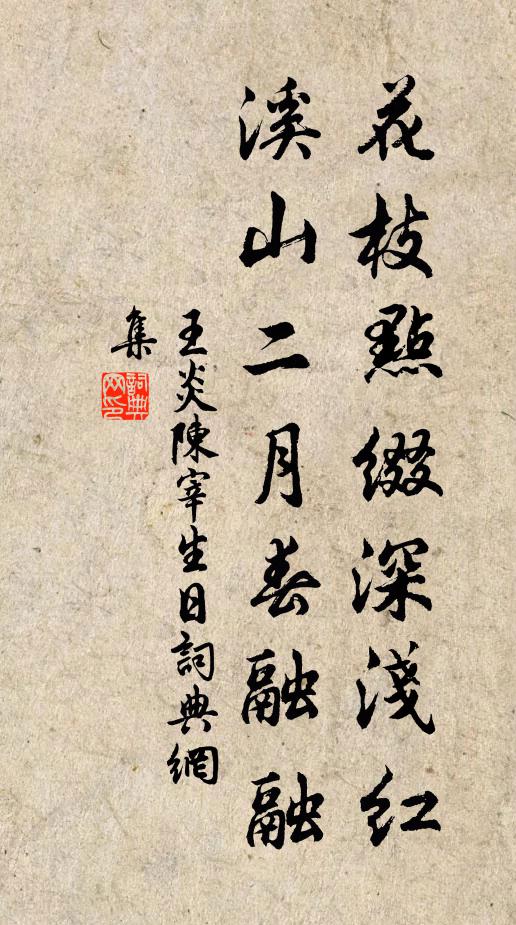 花枝點綴深淺紅
溪山二月春融融
王炎陳宰生日詞典網
集
詞典網印